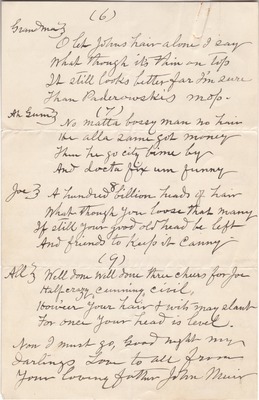 (6)
Grandma}
O let Johns hair alone I say
What though its thin on top
It still looks better far I'm sure
Than Paderewskis mop.
(7)
Ah Gunn} No matta bossy man no hair
He alla same got money
Then he go city bime by
And docta fix um funny
(8)
Joe} A hundred billion heads of hair
What though you loose that many
If still your good old head be left
And friends to keep it canny—
(9)
All} Well done Well done three cheers for Joe
Half crazy, cunning, civil,
Howe'er your hair & wits may slant
For once your head is level.
Now I must go, Good night my
darlings Love to all from
Your loving father John Muir